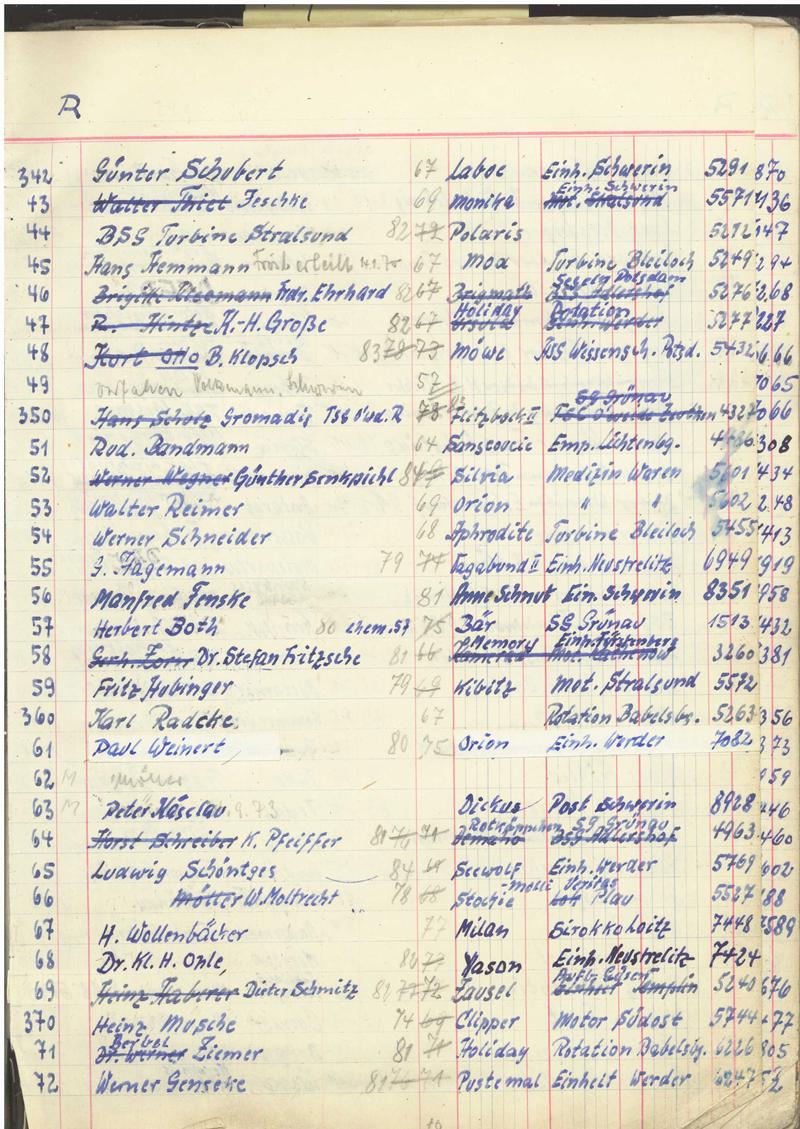 R
342 Günter Schubert 67 Laboe Einh. Schwerin 5291 870
43 Walter Thiet Jeschke 69 Monika Einh. Schwerin Mot. Stralsund 5571 436
44 BSG Turbine Stralsund 82 72 Polaris 5212 147
45 Hans Hemmann 67 Moa Turbine Bleiloch 5249 294
46 Brigitte Frdr. Ehrhard 82 67 Potsdam BSG Adlershof 5276 268
47 R. Hintze K.-H. Große 82 67 Holiday Ursula Rotation Einh. Werder 5277 227
48 Kurt Otto B. Klopsch 83 78 73 Möwe ASG Wissensch. Ptzd. 5432 666
49 Volkmann, Schwerin 57 7065
350 Hans Scholz Gromadis TSG O'wd. R 78 Flitzbock II SG Grünau 4327 066
51 Rud. Bandmann 64 Sanssoucie Emp. Lichtenbg. 308
52 Werner Wegner Günther Senkpiehl 84 Silvia Medizin Waren 5601 434
53 Walter Reimer 69 Orion " " 5602 248
54 Werner Schneider 68 Aphrodite Turbine Bleiloch 5455 413
55 G. Hagemann 79 74 Vagabund II Einh. Neustrelitz 6949 919
56 Manfred Fenske 81 Anne Schnut Ein. Schwerin 8351 958
57 Herbert Both 80 chem. 57 75 Bär SG Grünau 1513 432
58 Gerh. Zorn Dr. Stefan Fritzsche 81 66 Memory Einh. Fürstenberg 3260 381
59 Fritz Hubinger 79 69 Kibitz Mot. Stralsund 5572
360 Karl Radcke 67 Rotation Babelsbg. 5263 356
61 Paul Weinert 80 75 Orion Einh. Werder 7082 373
62 M 959
63 M Peter Häselau 9.73 Dickus Post Schwerin 8928 446
64 Horst Schreiber K. Pfeiffer 81 76 71 Rotkäppchen SG Grünau BSG Adlershof 4963 460
65 Ludwig Schöntges 84 69 Seewolf Einh. Werder 5769 602
66 Möller W. Moltrecht 78 68 Molli Plau 5527 88
67 H. Wollenbäcker 77 Milan Sirokko Loitz 7448 589
68 Dr. Kl. H. Ohle, 80 77 Yason Einh. Neustrelitz 7424
69 Heinz Haberer Dieter Schmitz 81 77 72 Zausel 5240 676
370 Heinz Musche 74 69 Clipper Motor Südost 5744 77
71 Bärbel Dr. Werner Ziemer 81 71 Holiday Rotation Babelsbg. 6226 805
72 Werner Genseke 81 76 71 Pustemal Einheit Werder 6247 52